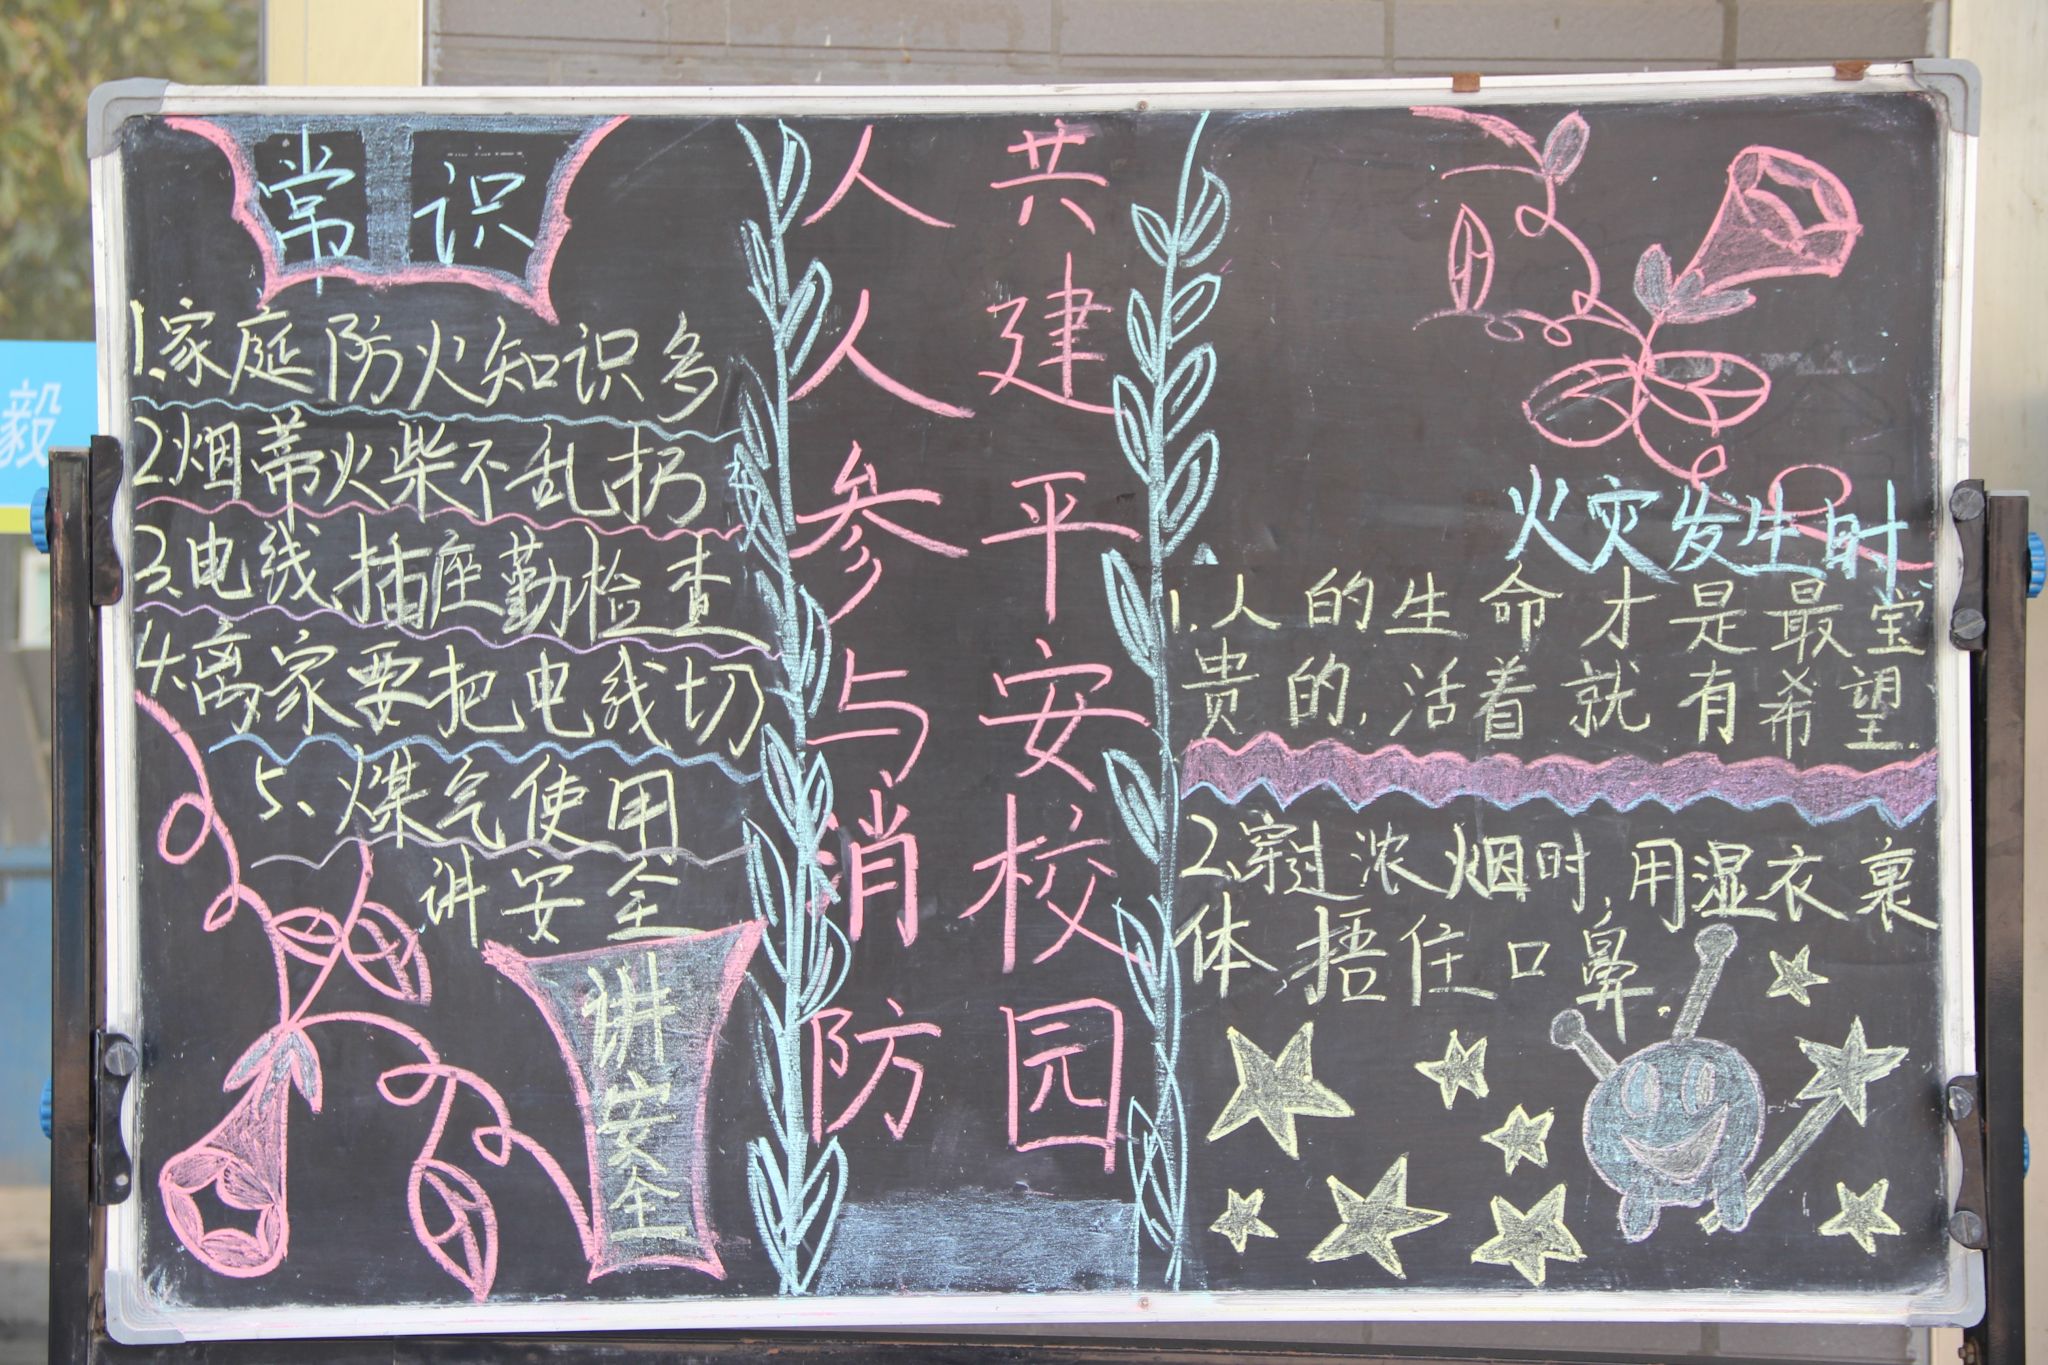 毅
常识
1.家庭防火知识多
2烟蒂火柴不乱扔
3.电线插座勤检查
4.离家要把电线切
5、煤气使用
讲安全
讲安全
人人参与消防
共建平安校园
火灾发生时
1.人的生命才是最宝
贵的.活着就有希望.
2.穿过浓烟时,用湿衣裹
体,捂住口鼻.